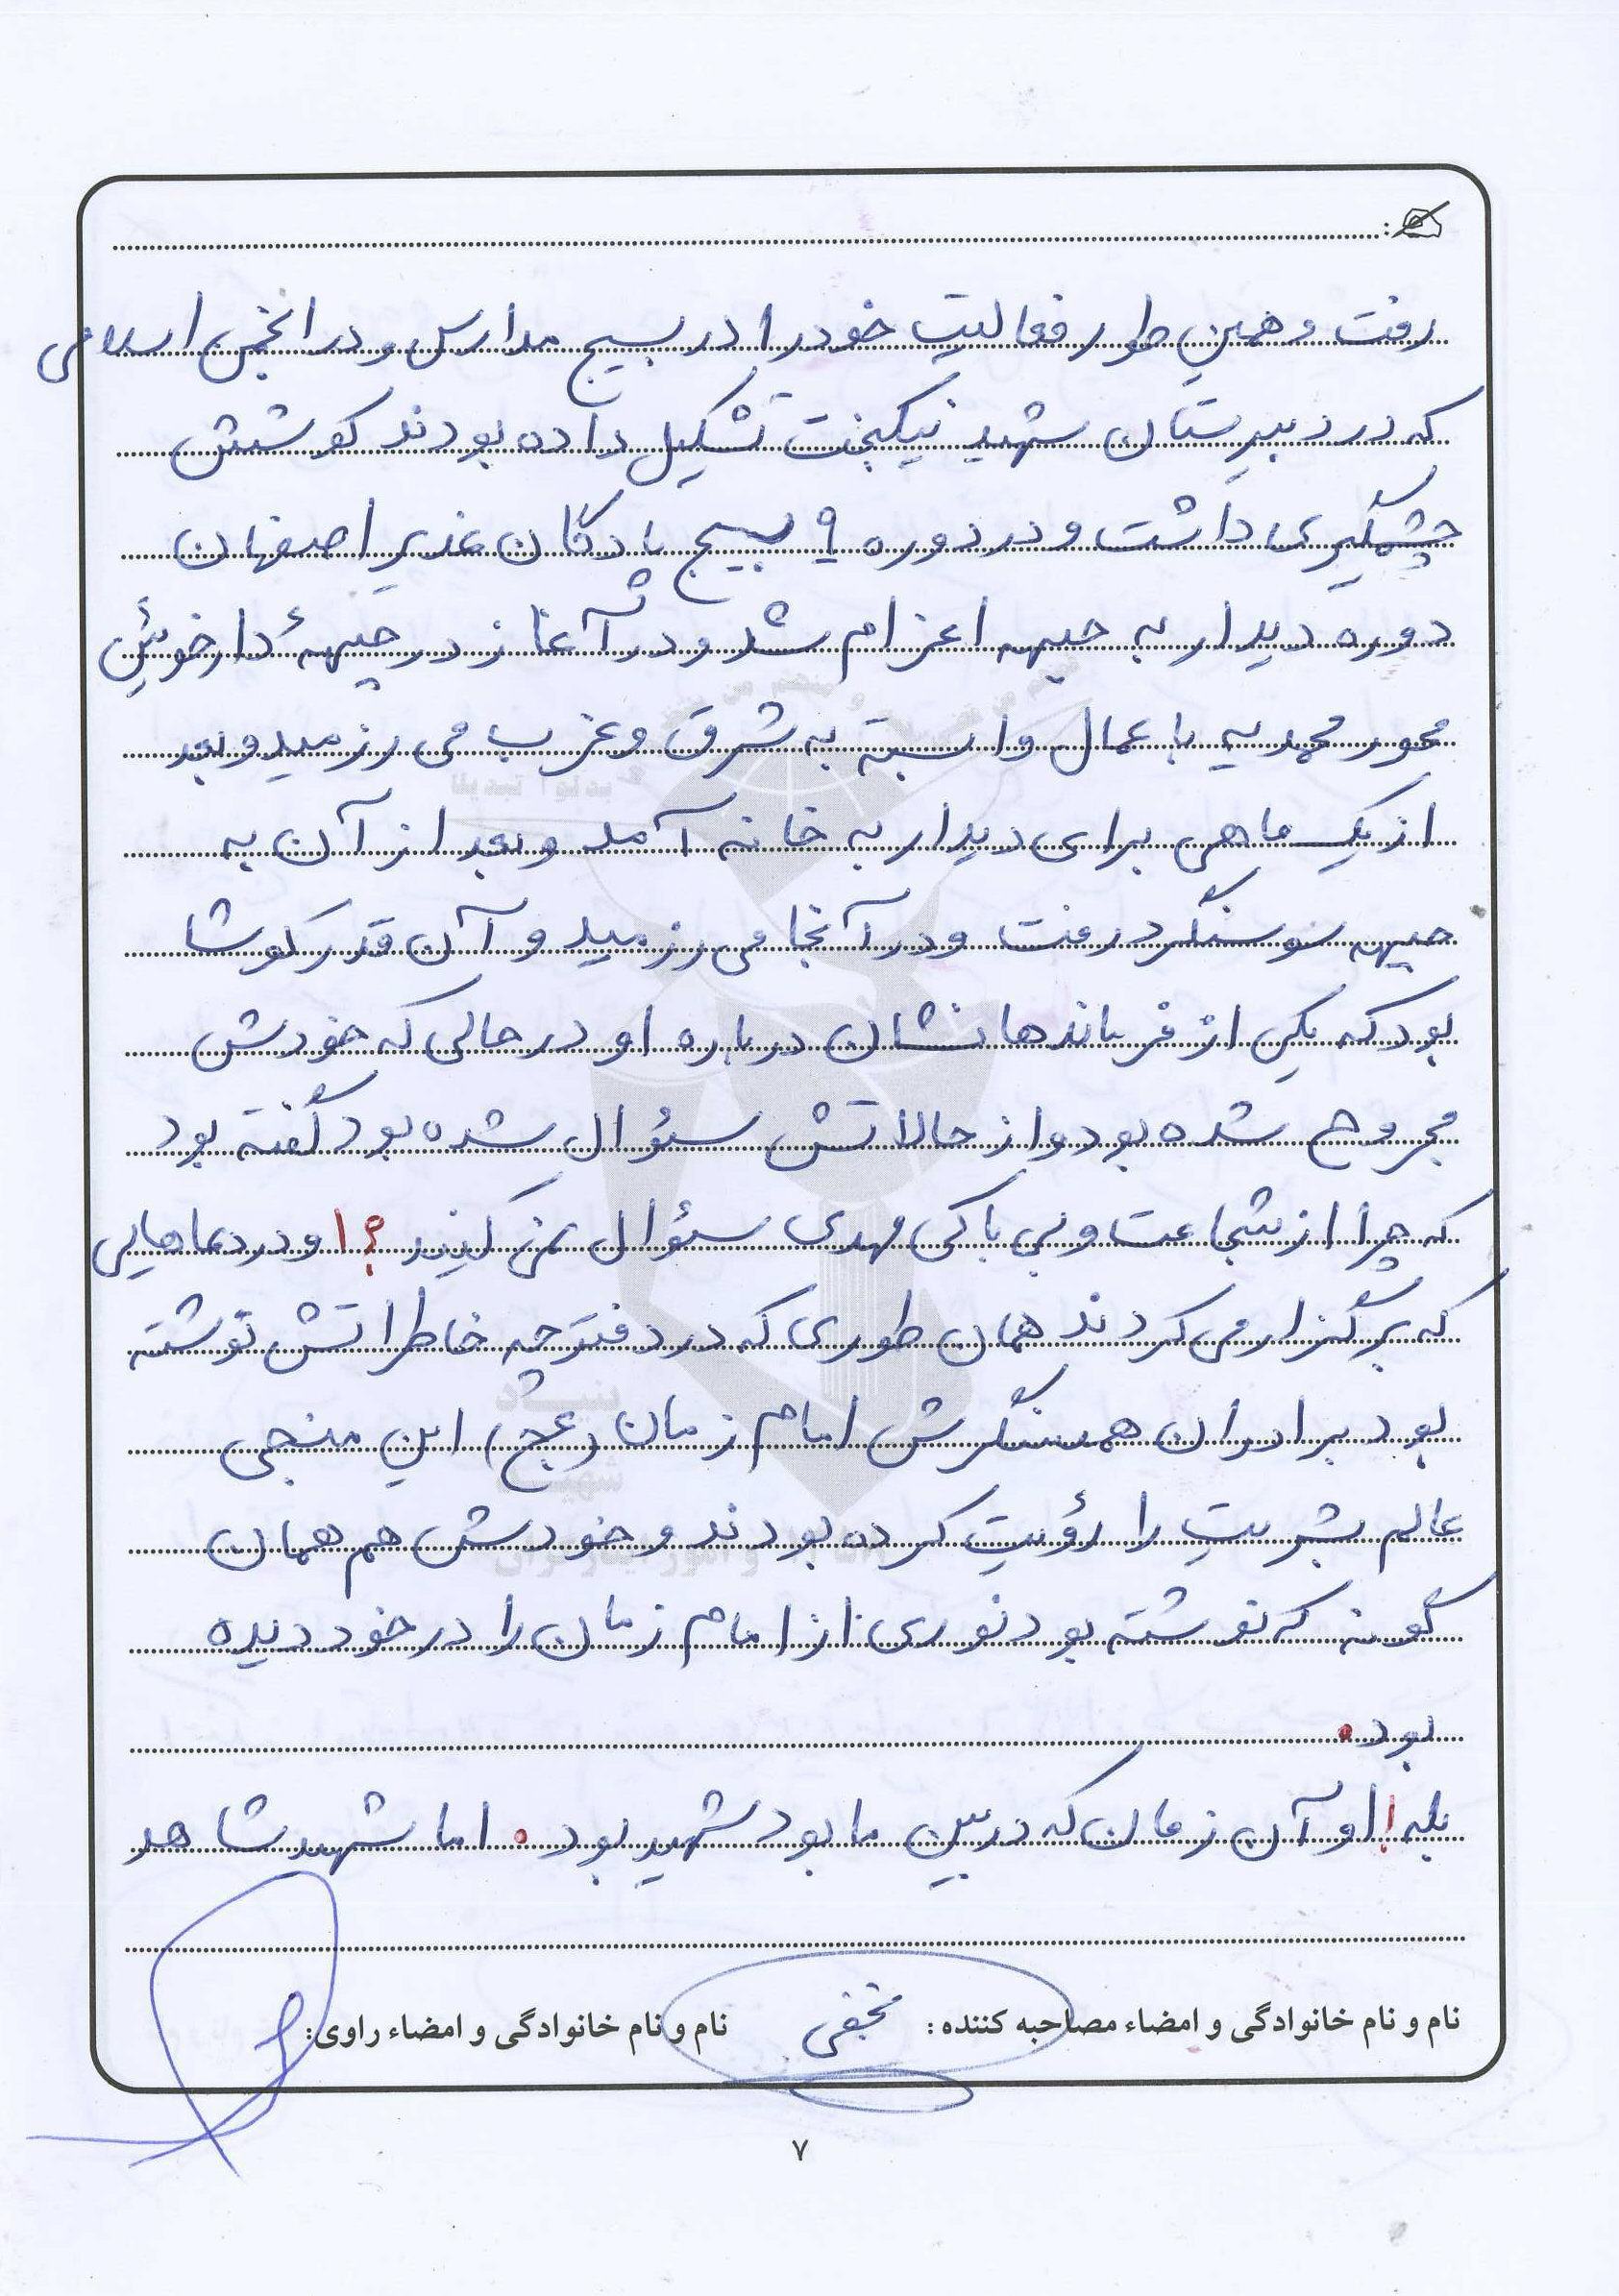 رفت و همین طور فعالیت خود را در بسیج مدارس و در انجمن اسلامی
که در دبیرستان شهید نیکبخت تشکیل داده بودند کوشش
چشمگیری داشت و در دوره ۹ بسیج پادگان غدیر اصفهان
دوره دیدار به جبهه اعزام شد و در آغاز در جبههٔ دارخوئین
محور محمدیه با عمال وابسته به شرق و غرب می رزمید و بعد
از یک ماهی برای دیدار به خانه آمد و بعد از آن به
جبهه سوسنگرد رفت و در آنجا می رزمید و آن قدر کوشا
بود که یکی از فرماندهانشان درباره او در حالی که خودش
مجروح شده بود و از حالاتش سئوال شده بود گفته بود
که چرا از شجاعت و بی باکی مهدی سئوال نمی کنید؟! او در دعاهایی
که برگزار می کردند همان طوری که در دفترچه خاطراتش نوشته
بود برادران همسنگرش امام زمان (عج) این منجی
عالم بشریت را رؤیت کرده بودند و خودش هم همان
گونه که نوشته بود نوری از امام زمان را در خود دیده
بود.
بله! او آن زمان که در بین ما بود شهید بود. اما شهید شاهد
نام و نام خانوادگی و امضاء مصاحبه کننده: نجفی نام و نام خانوادگی و امضاء راوی:
۷